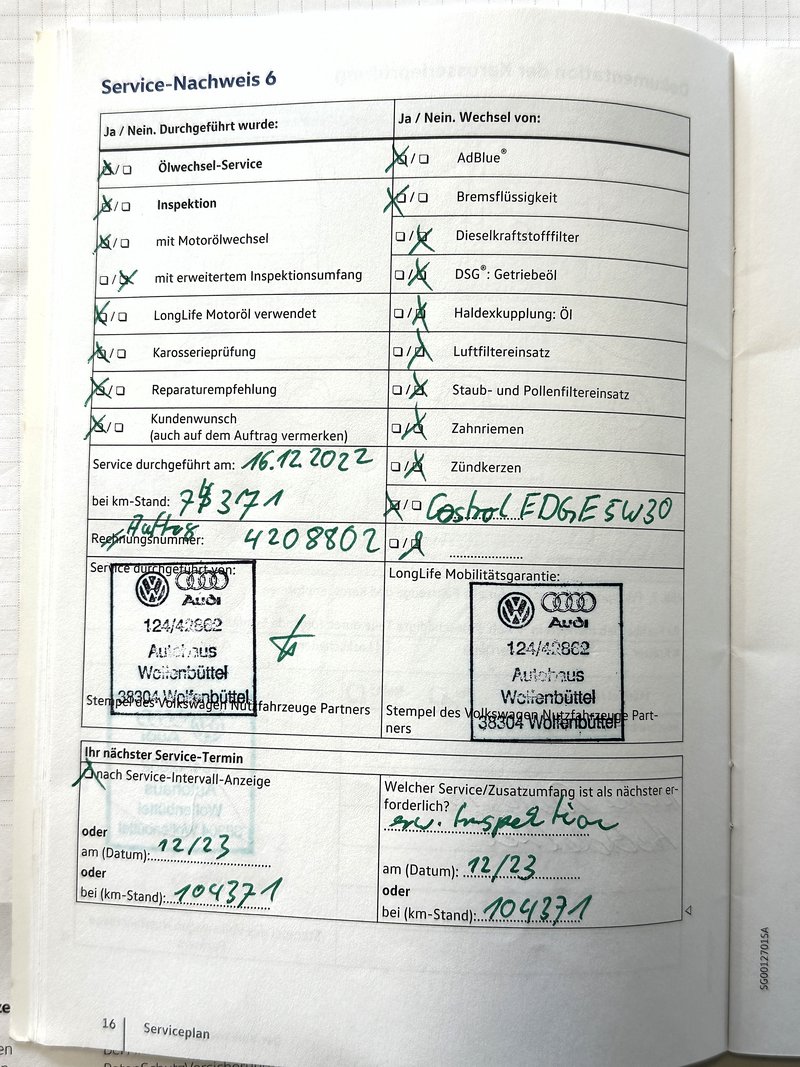 Service-Nachweis 6
Ja / Nein. Durchgeführt wurde:
Ölwechsel-Service
Inspektion
mit Motorölwechsel
mit erweitertem Inspektionsumfang
LongLife Motoröl verwendet
Karosserieprüfung
Reparaturempfehlung
Kundenwunsch
(auch auf dem Auftrag vermerken)
Service durchgeführt am: 16.12.2022
bei km-Stand: 75371
Auftrag
Rechnungsnummer: 4208802
Service durchgeführt von:
Audi
124/42862
Autohaus
Wolfenbüttel
38304 Wolfenbüttel
Stempel des Volkswagen Nutzfahrzeuge Partners
Ja / Nein. Wechsel von:
AdBlue®
Bremsflüssigkeit
Dieselkraftstofffilter
DSG®: Getriebeöl
Haldexkupplung: Öl
Luftfiltereinsatz
Staub- und Pollenfiltereinsatz
Zahnriemen
Zündkerzen
Castrol EDGE 5W30
LongLife Mobilitätsgarantie:
Audi
124/42862
Autohaus
Wolfenbüttel
38304 Wolfenbüttel
Stempel des Volkswagen Nutzfahrzeuge Part-
ners
Ihr nächster Service-Termin
nach Service-Intervall-Anzeige
oder
am (Datum): 12/23
oder
bei (km-Stand): 104371
Welcher Service/Zusatzumfang ist als nächster er-
forderlich?
erw. Inspektion
am (Datum): 12/23
oder
bei (km-Stand): 104371
16 Serviceplan
SG0012701SA